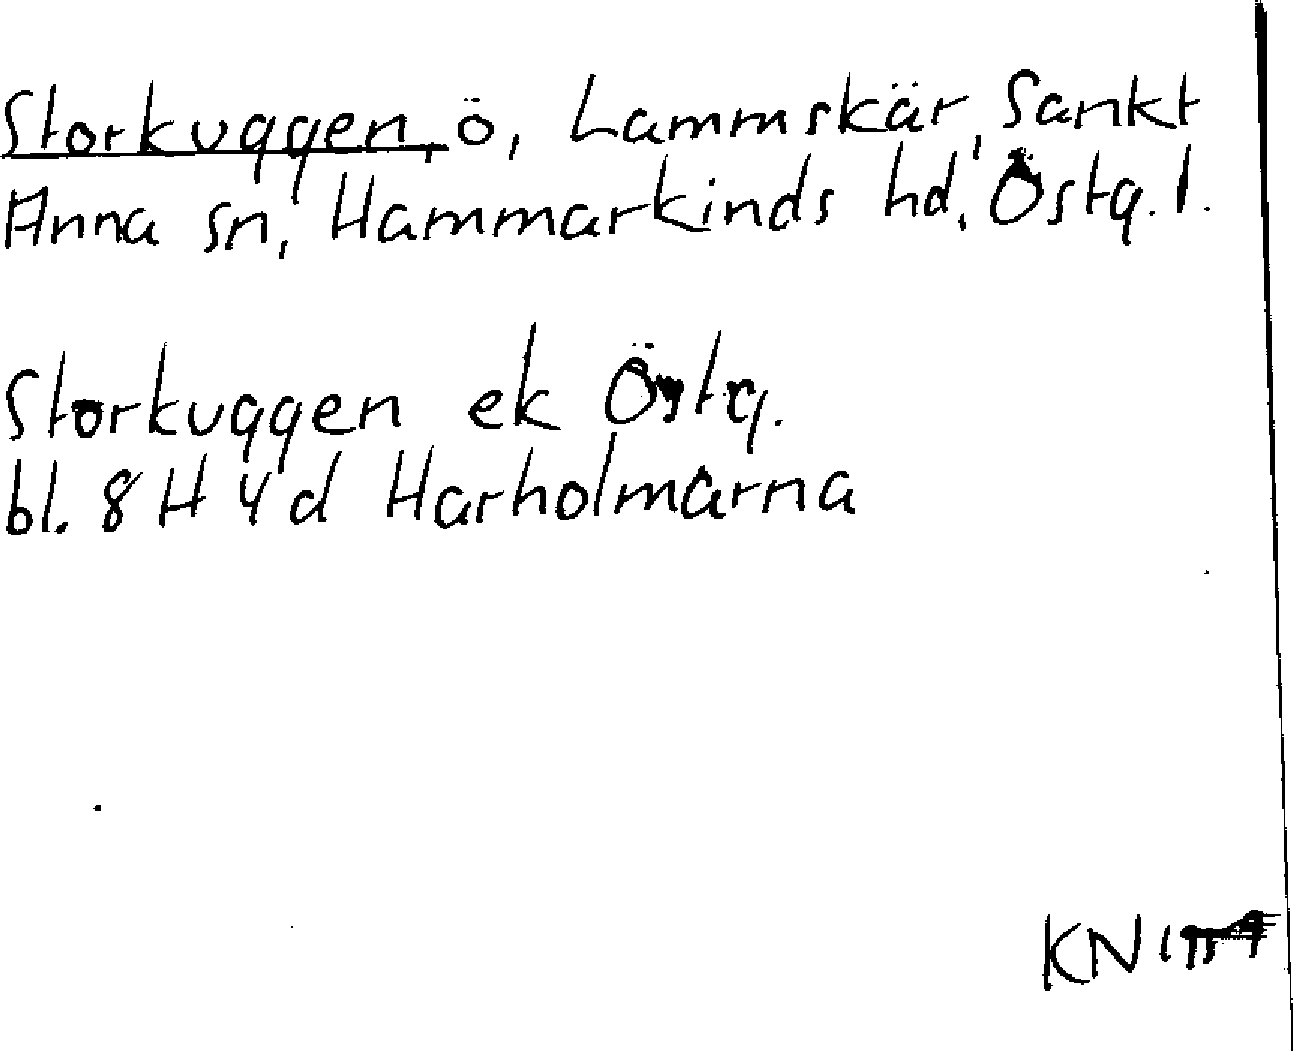 Storkuggen, ö, Lammskär, Sankt
Anna sn, Hammarkinds hd, Östg. l.
Storkuggen ek Östg.
bl. 8 H 4 d Harholmarna
KN